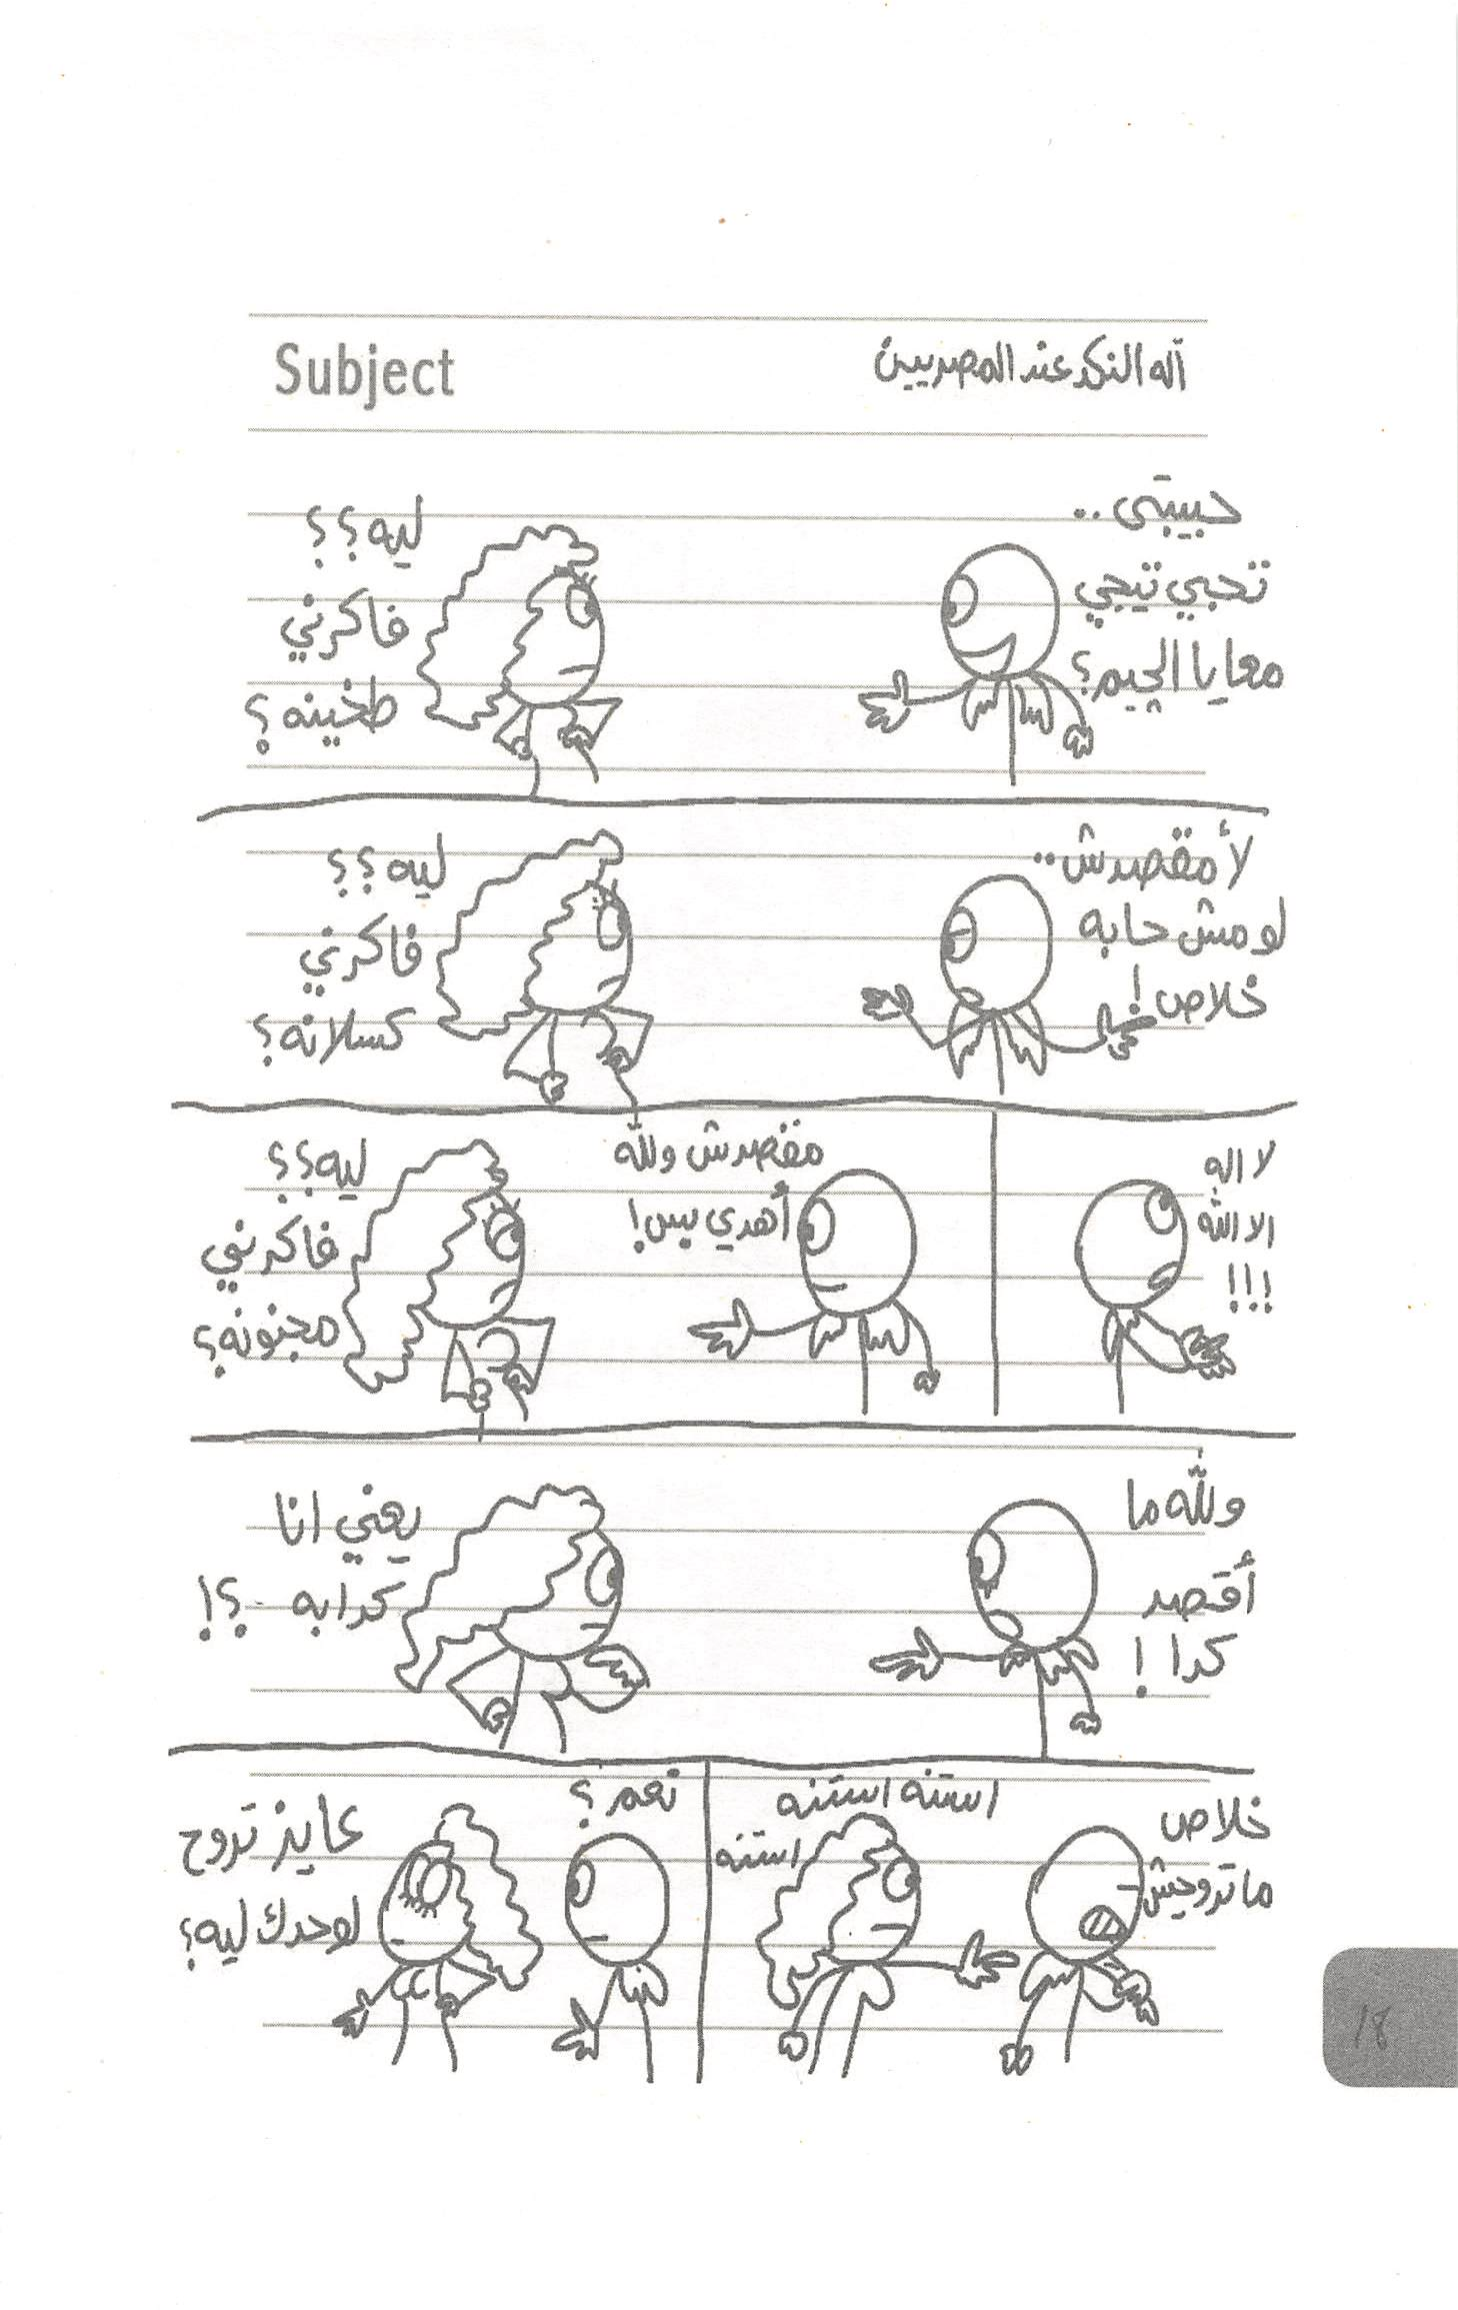 Subject
آله النكد عند المصريين
حبيبتى ..
تحبي تيجي
معايا الچيم؟
ليه؟؟
فاكرني
طخينه؟
لأ مقصدش..
لو مش حابه
خلاص!
ليه؟؟
فاكرني
كسلانه؟
لا اله
الا الله
!!!
مقصدش والله
أهدي بس!
ليه؟؟
فاكرني
مجنونه؟
والله ما
أقصد
كدا!
يعني انا
كدابه ؟!
خلاص
ماتروحيش
استنه استنه
استنه
نعم؟
عايز تروح
لوحدك ليه؟
18